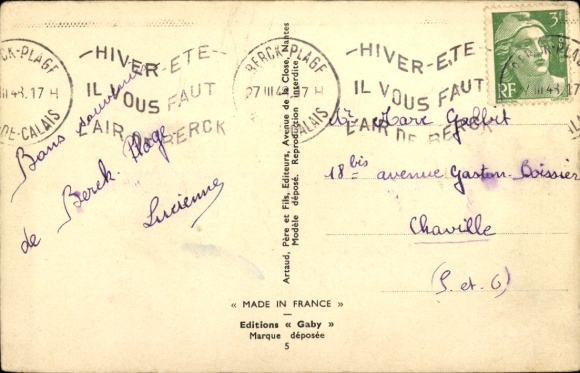 BERCK-PLAGE
27 III 48. 17 H
PAS-DE-CALAIS
—HIVER-ETE—
IL VOUS FAUT
L'AIR DE BERCK
BERCK-PLAGE
27 III 48. 17 H
PAS-DE-CALAIS
—HIVER-ETE—
IL VOUS FAUT
L'AIR DE BERCK
3F
RF
Bons souvenirs
de Berck. Plage
Lucienne
Artaud, Père et Fils, Editeurs, Avenue de la Close, Nantes
Modèle déposé. Reproduction Interdite.
Marc
18bis avenue Gaston-Boissier
Chaville
(S. et O)
« MADE IN FRANCE »
Editions « Gaby »
Marque déposée
5